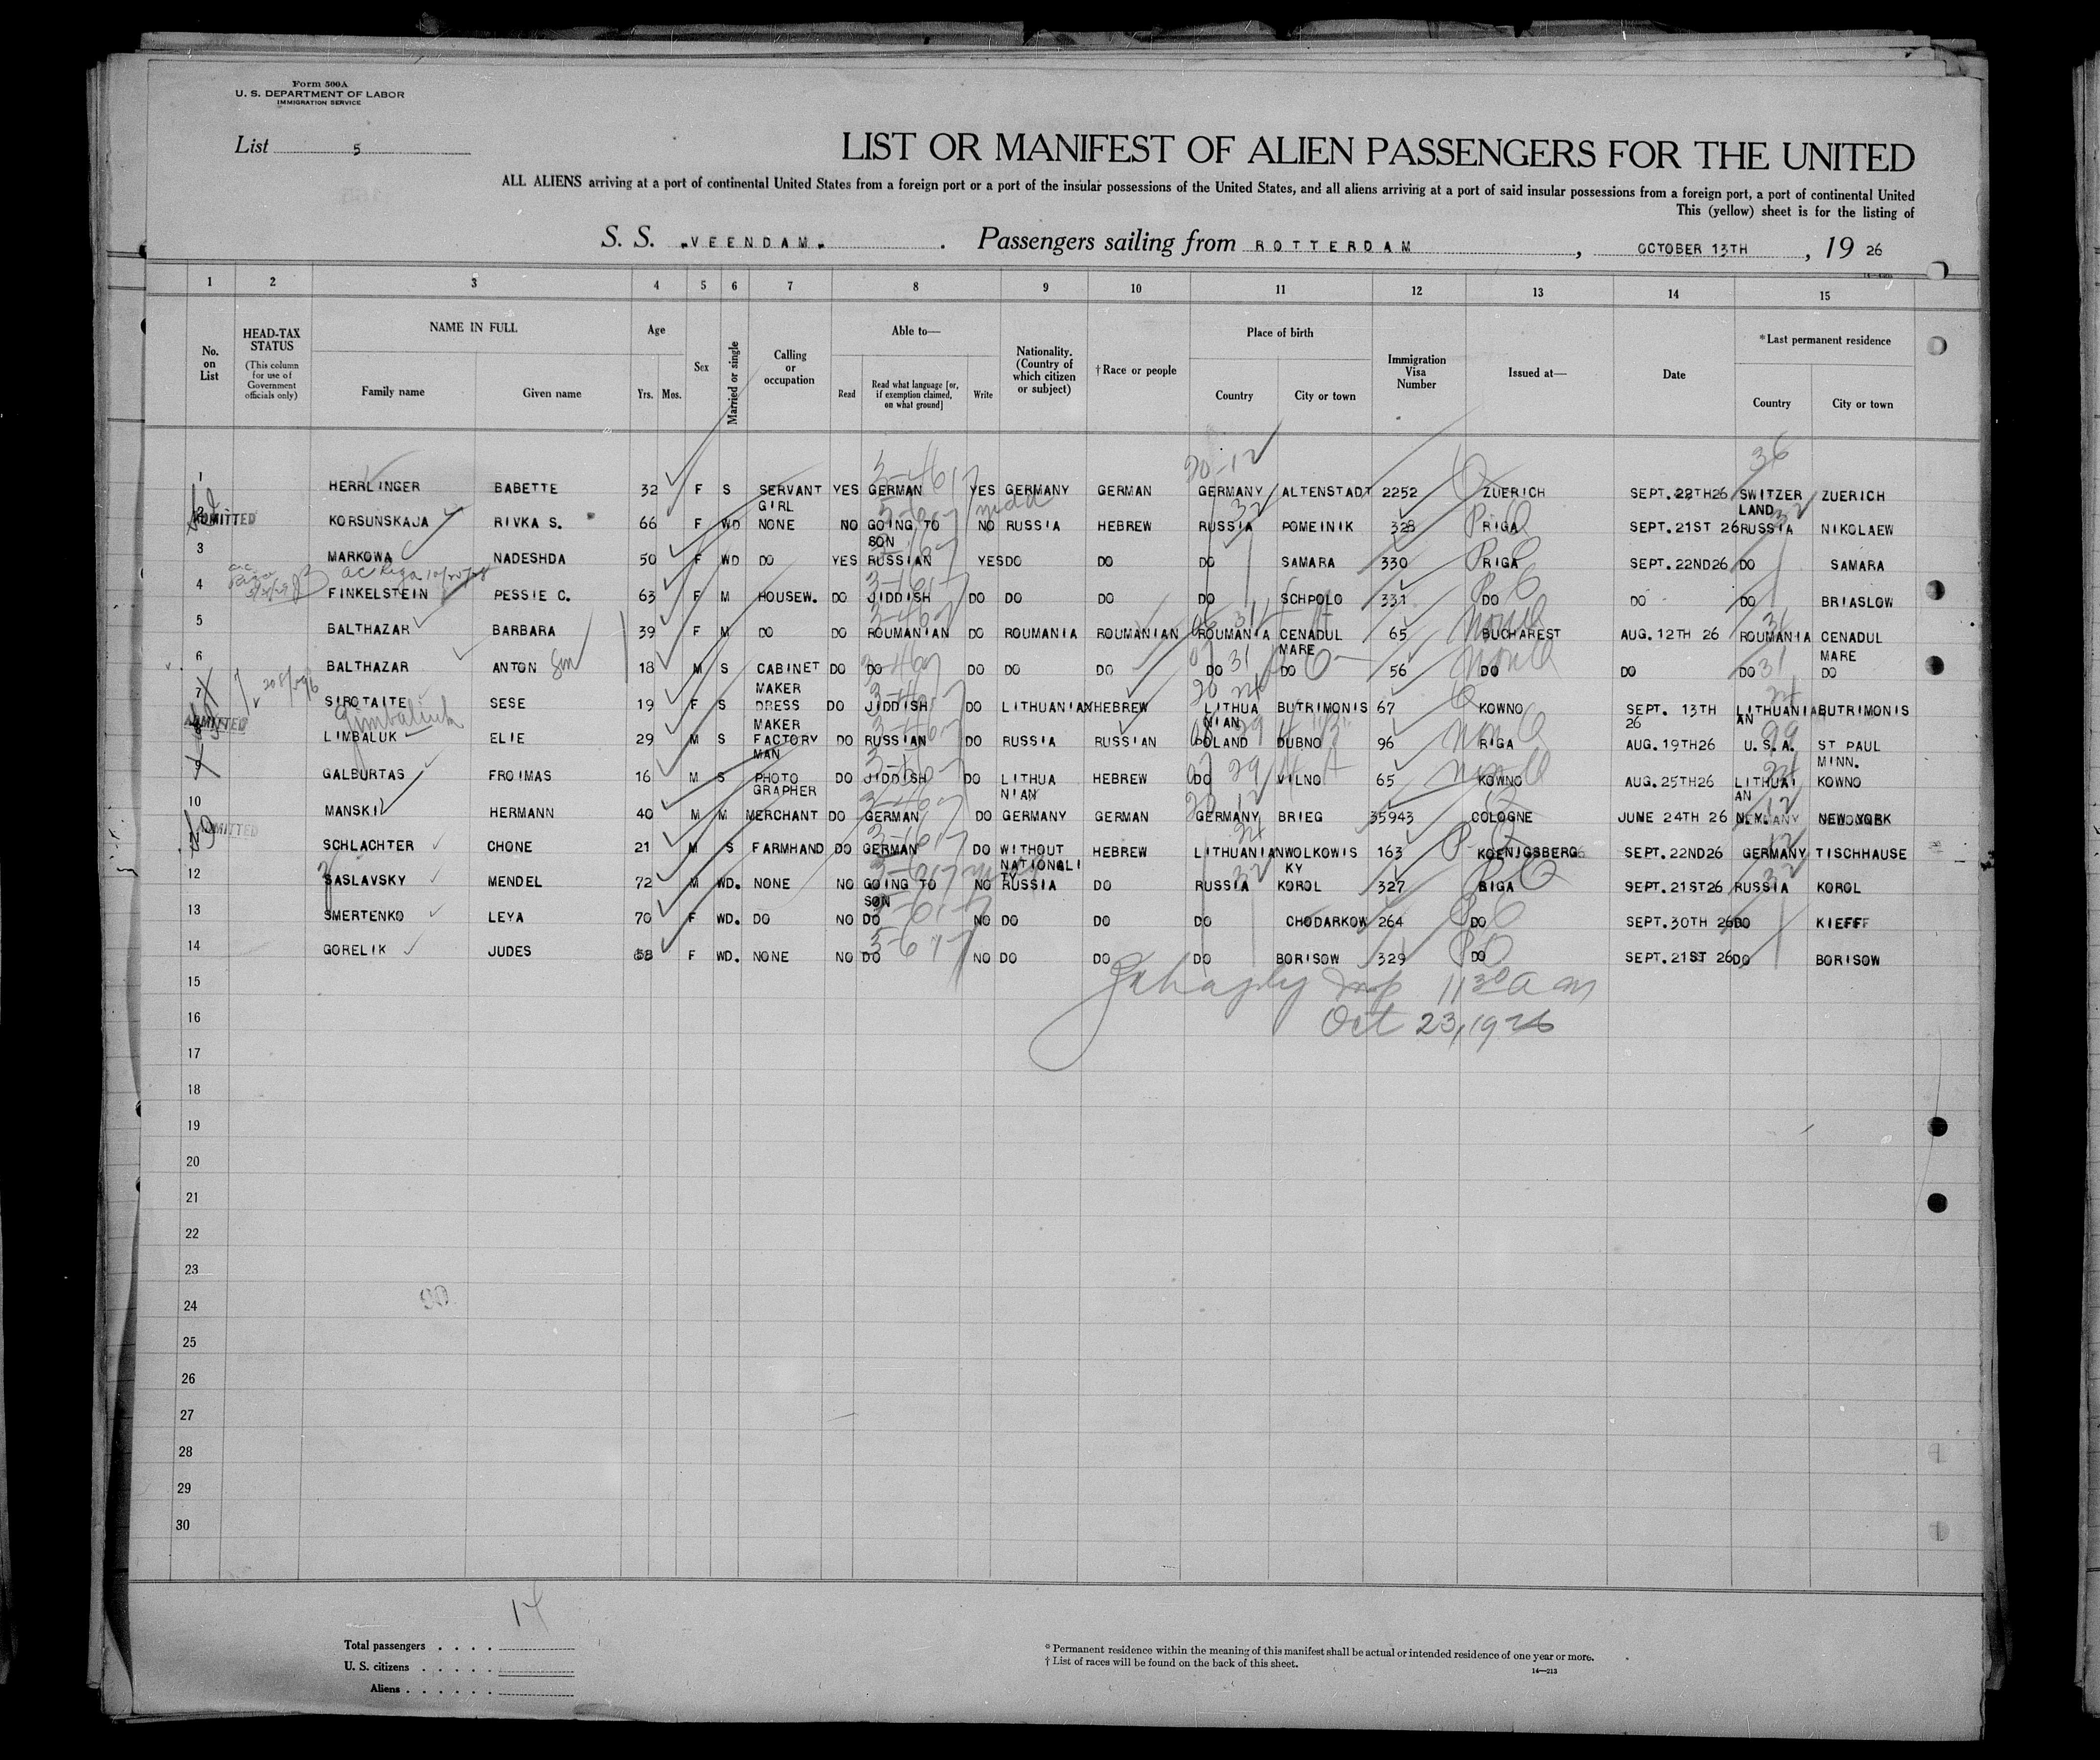 Form 500A
U. S. DEPARTMENT OF LABOR
IMMIGRATION SERVICE
List 5
LIST OR MANIFEST OF ALIEN PASSENGERS FOR THE UNITED
ALL ALIENS arriving at a port of continental United States from a foreign port or a port of the insular possessions of the United States, and all aliens arriving at a port of said insular possessions from a foreign port, a port of continental United
This (yellow) sheet is for the listing of
S. S. "VEENDAM" . Passengers sailing from ROTTERDAM , OCTOBER 13TH , 19 26
1 2 3 4 5 6 7 8 9 10 11 12 13 14 15
No. on List
HEAD-TAX STATUS
(This column for use of Government officials only)
NAME IN FULL
Family name Given name
Age
Yrs. Mos.
Sex
Married or single
Calling or occupation
Able to—
Read Read what language [or, if exemption claimed, on what ground] Write
Nationality. (Country of which citizen or subject)
†Race or people
Place of birth
Country City or town
Immigration Visa Number
Issued at—
Date
*Last permanent residence
Country City or town
1 HERRLINGER BABETTE 32 F S SERVANT GIRL YES GERMAN YES GERMANY GERMAN GERMANY ALTENSTADT 2252 ZUERICH SEPT. 28TH26 SWITZERLAND ZUERICH
ADMITTED
2 KORSUNSKAJA RIVKA S. 66 F WD NONE NO GOING TO SON NO RUSSIA HEBREW RUSSIA POMEINIK 328 RIGA SEPT.21ST 26 RUSSIA NIKOLAEW
3 MARKOWA NADESHDA 50 F WD DO YES RUSSIAN YES DO DO DO SAMARA 330 RIGA SEPT.22ND26 DO SAMARA
4 FINKELSTEIN PESSIE C. 63 F M HOUSEW. DO JIDDISH DO DO DO DO SCHPOLO 331 DO DO DO BRIASLOW
5 BALTHAZAR BARBARA 39 F M DO DO ROUMANIAN DO ROUMANIA ROUMANIAN ROUMANIA CENADUL MARE 65 BUCHAREST AUG.12TH 26 ROUMANIA CENADUL MARE
6 BALTHAZAR ANTON Son 18 M S CABINET MAKER DO DO DO DO DO DO DO 56 DO DO DO DO
7 SIROTAITE SESE 19 F S DRESS MAKER DO JIDDISH DO LITHUANIAN HEBREW LITHUANIAN BUTRIMONIS 67 KOWNO SEPT. 13TH 26 LITHUANIAN BUTRIMONIS
ADMITTED
8 LIMBALUK ELIE 29 M S FACTORY MAN DO RUSSIAN DO RUSSIA RUSSIAN POLAND DUBNO 96 RIGA AUG.19TH26 U.S.A. ST PAUL MINN.
9 GALBURTAS FROIMAS 16 M S PHOTOGRAPHER DO JIDDISH DO LITHUANIAN HEBREW DO VILNO 65 KOWNO AUG.25TH26 LITHUAIAN KOWNO
10 MANSKI HERMANN 40 M M MERCHANT DO GERMAN DO GERMANY GERMAN GERMANY BRIEG 35943 COLOGNE JUNE 24TH 26 N.Y. NEW YORK
ADMITTED
11 SCHLACHTER CHONE 21 M S FARMHAND DO GERMAN DO WITHOUT NATIONALITY HEBREW LITHUANIAN WOLKOWISKY 163 KOENIGSBERG SEPT.22ND26 GERMANY TISCHHAUSE
12 SASLAVSKY MENDEL 72 M WD. NONE NO GOING TO SON NO RUSSIA DO RUSSIA KOROL 327 RIGA SEPT.21ST26 RUSSIA KOROL
13 SMERTENKO LEYA 70 F WD. DO NO DO NO DO DO DO CHODARKOW 264 DO SEPT.30TH 26 DO KIEFF
14 GORELIK JUDES 58 F WD. NONE NO DO NO DO DO DO BORISOW 329 DO SEPT.21ST 26 DO BORISOW
15
11 30 a m
16
Oct 23, 1926
17
18
19
20
21
22
23
24
25
26
27
28
29
30
14
Total passengers . . . .
U. S. citizens . . . . .
Aliens . . . . . .
* Permanent residence within the meaning of this manifest shall be actual or intended residence of one year or more.
† List of races will be found on the back of this sheet.
14—213